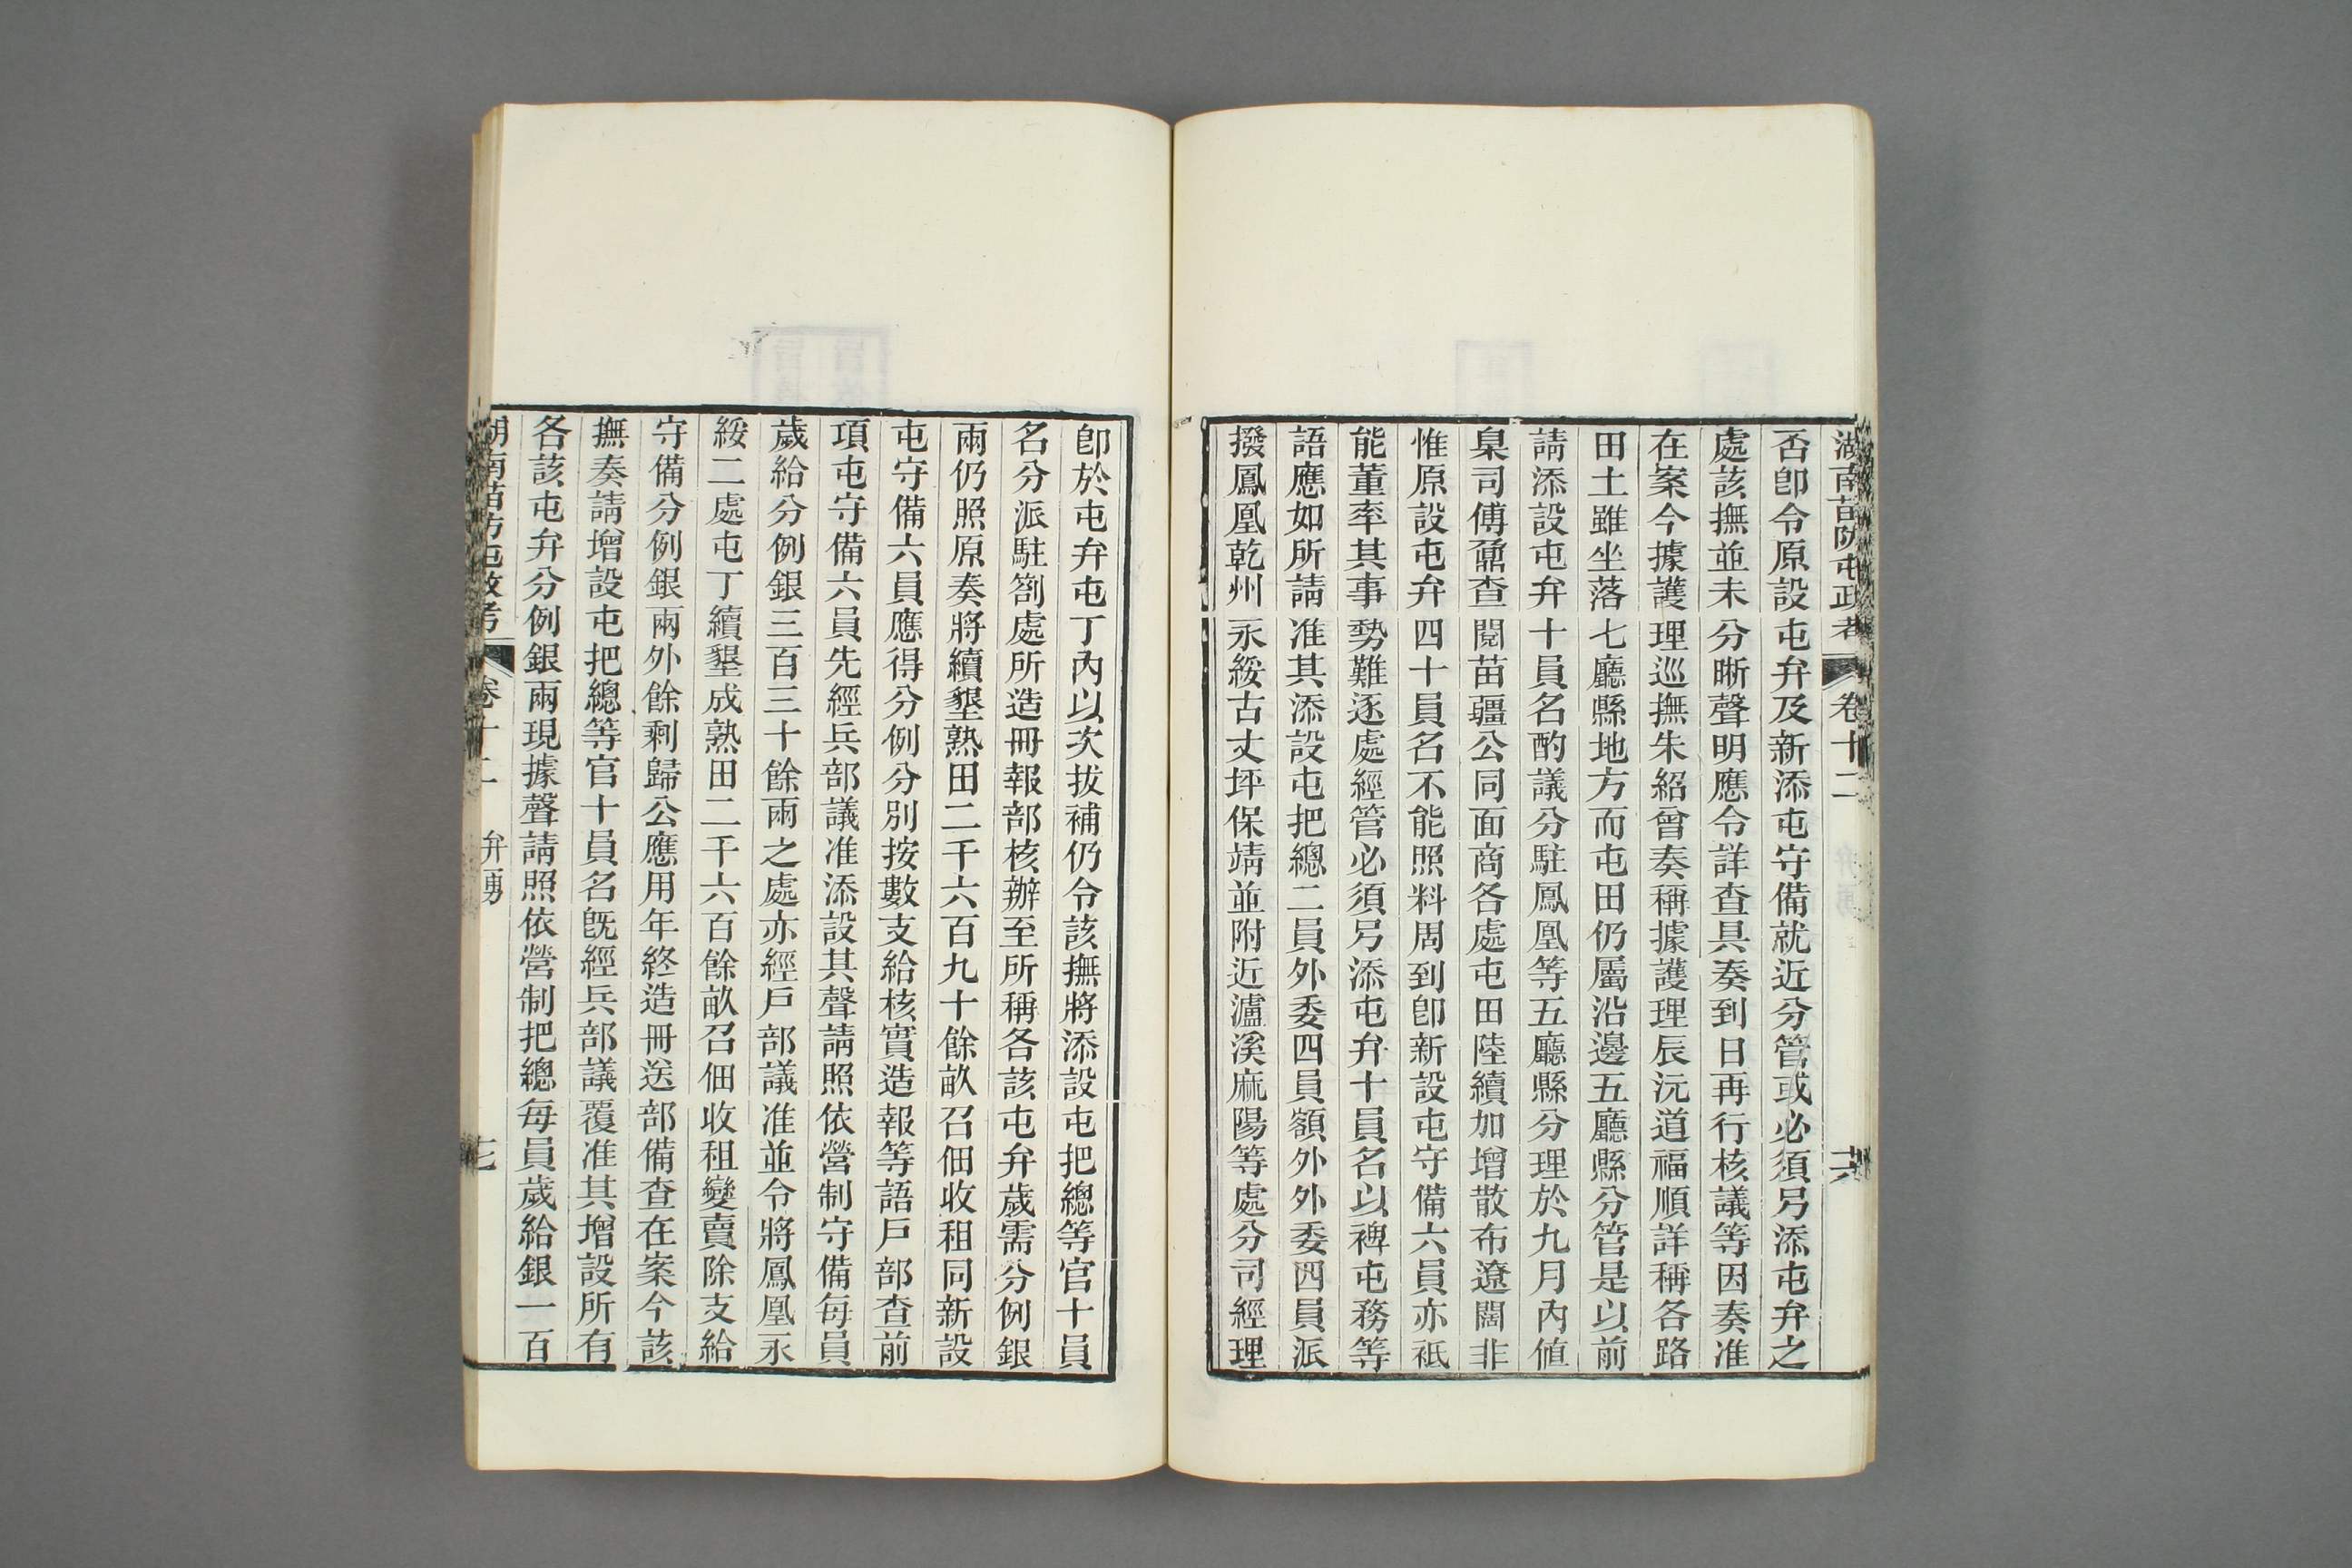 湖南苗防屯政考 卷十二 十六
否卽令原設屯弁及新添屯守備就近分管或必須另添屯弁之
處該撫並未分晰聲明應令詳查具奏到日再行核議等因奏准
在案今據護理巡撫朱紹曾奏稱據護理辰沅道福順詳稱各路
田土雖坐落七廳縣地方而屯田仍屬沿邊五廳縣分管是以前
請添設屯弁十員名酌議分駐鳳凰等五廳縣分理於九月內値
臬司傅鼐查閱苗疆公同面商各處屯田陸續加增散布遼闊非
惟原設屯弁四十員名不能照料周到卽新設屯守備六員亦祇
能董率其事勢難逐處經管必須另添屯弁十員名以裨屯務等
語應如所請准其添設屯把總二員外委四員額外外委四員派
撥鳳凰乾州永綏古丈坪保靖並附近瀘溪麻陽等處分司經理
卽於屯弁屯丁內以次拔補仍令該撫將添設屯把總等官十員
名分派駐劄處所造冊報部核辦至所稱各該屯弁歲需分例銀
兩仍照原奏將續墾熟田二千六百九十餘畝召佃收租同新設
屯守備六員應得分例分別按數支給核實造報等語戶部查前
項屯守備六員先經兵部議准添設其聲請照依營制守備每員
歲給分例銀三百三十餘兩之處亦經戶部議准並令將鳳凰永
綏二處屯丁續墾成熟田二千六百餘畝召佃收租變賣除支給
守備分例銀兩外餘剩歸公應用年終造冊送部備查在案今該
撫奏請增設屯把總等官十員名旣經兵部議覆准其增設所有
各該屯弁分例銀兩現據聲請照依營制把總每員歲給銀一百
湖南苗防屯政考 卷十二 弁勇 七